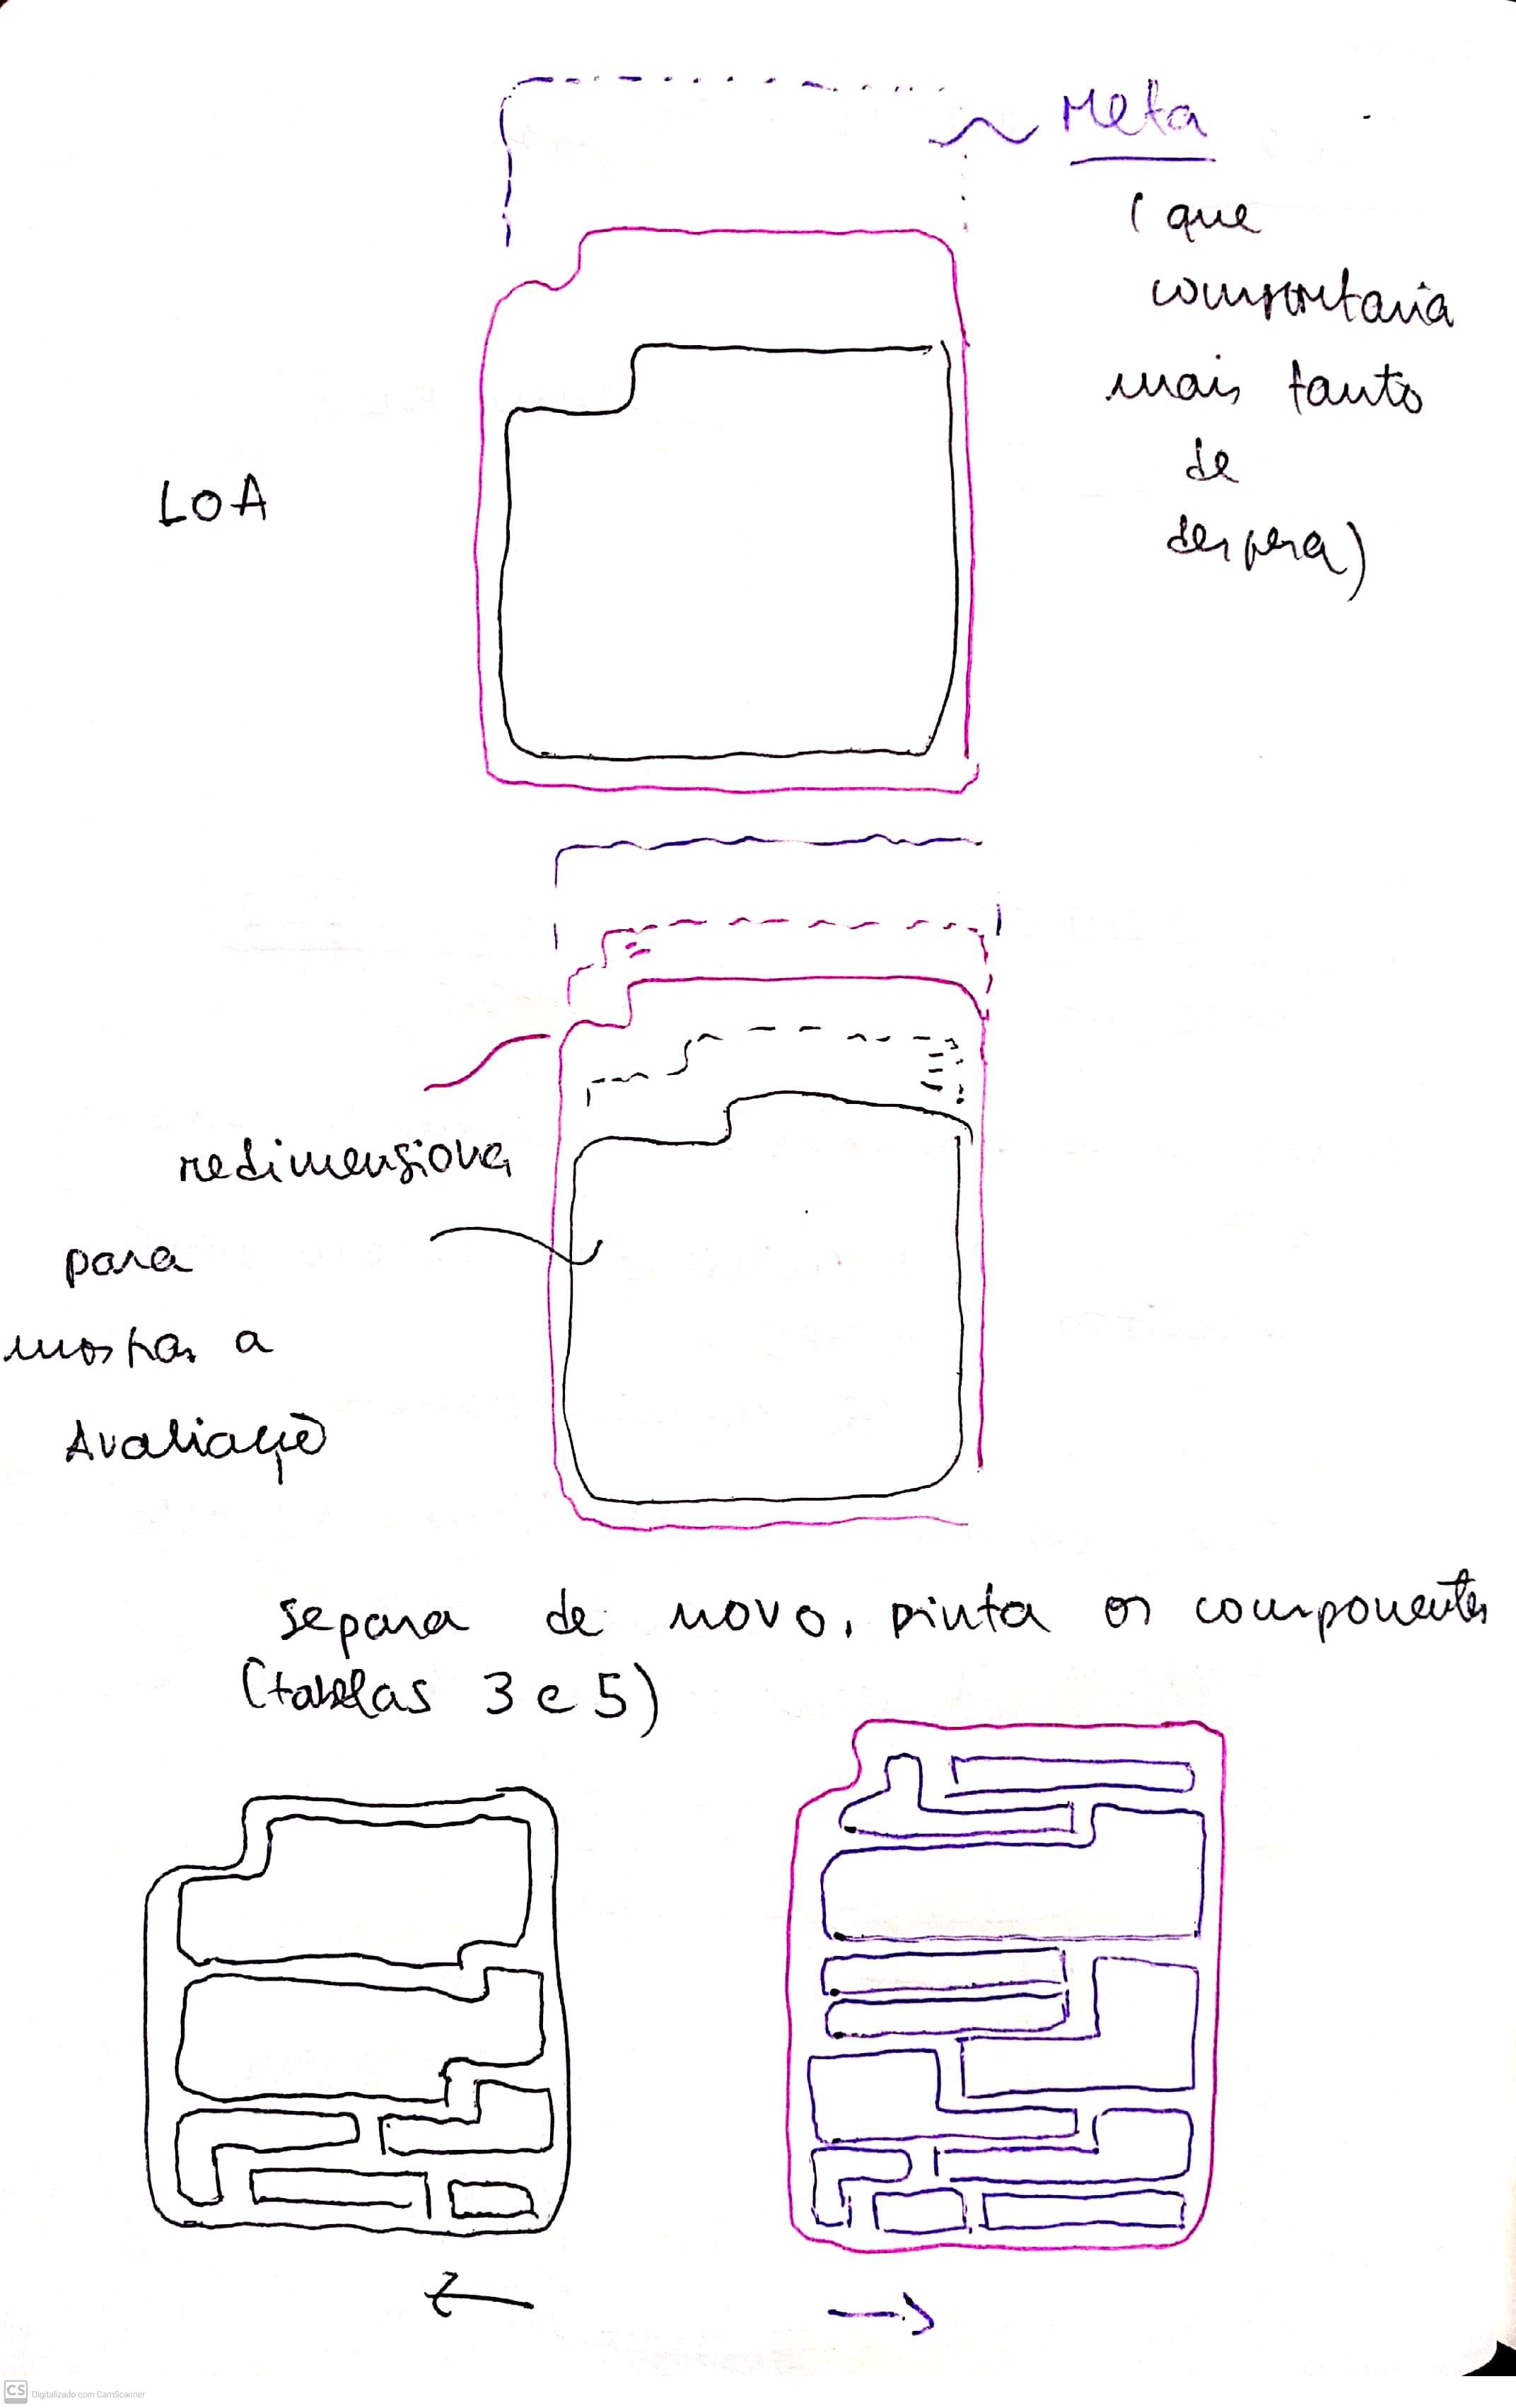 Meta
(que
comportaria
mais tanto
de
despesa)
LOA
redimensiona
para
mostra a
Avaliação
separa de novo, pinta os componentes
(tabelas 3 e 5)
CS Digitalizado com CamScanner